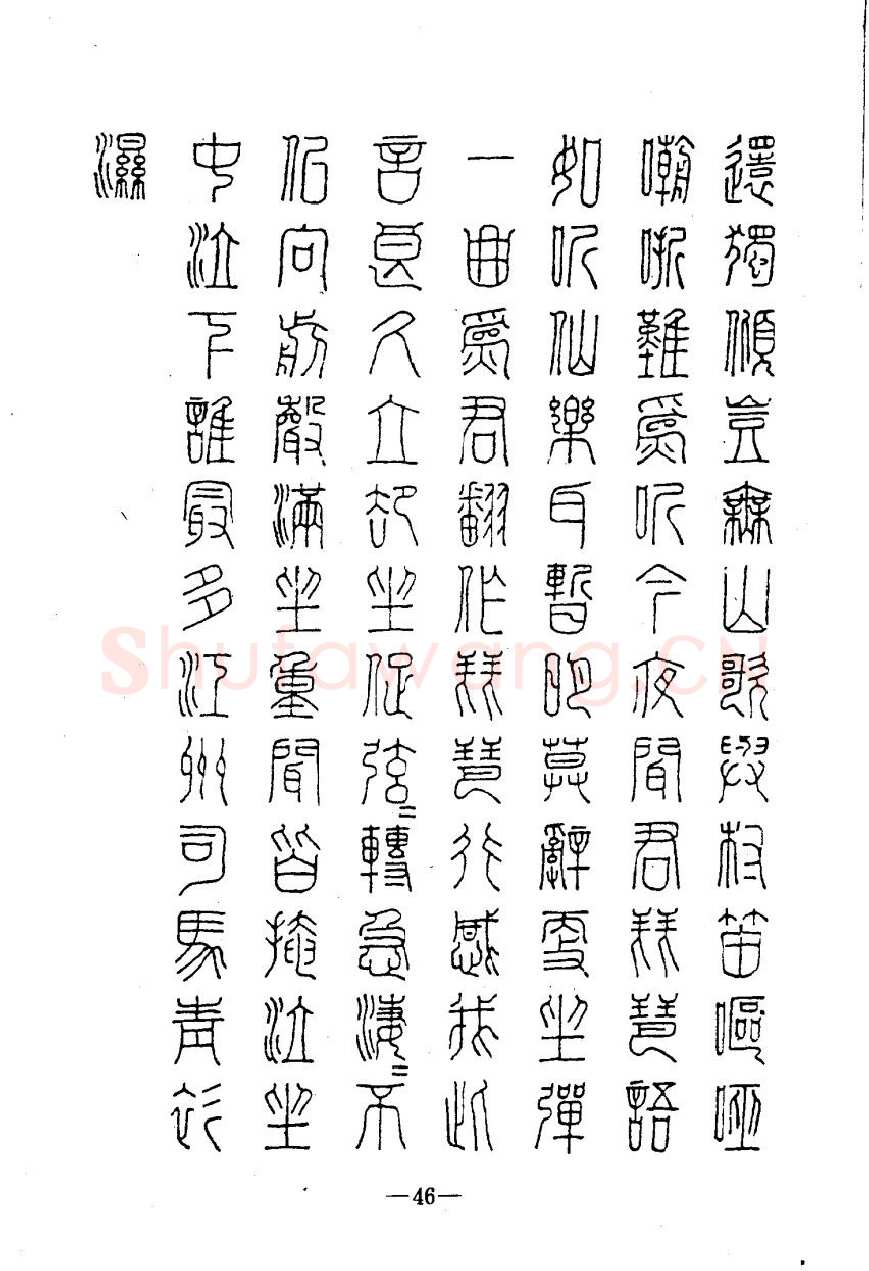 還獨傾豈無山歌與村笛嘔啞
嘲哳難為听今夜聞君琵琶語
如听仙樂耳暫明莫辭更坐彈
一曲為君翻作琵琶行感我此
言良久立却坐促弦＝轉急淒＝不
侣向前聲滿坐重聞皆掩泣坐
中泣下誰最多江州司馬青衫
濕
—46—
Shufawang.CN